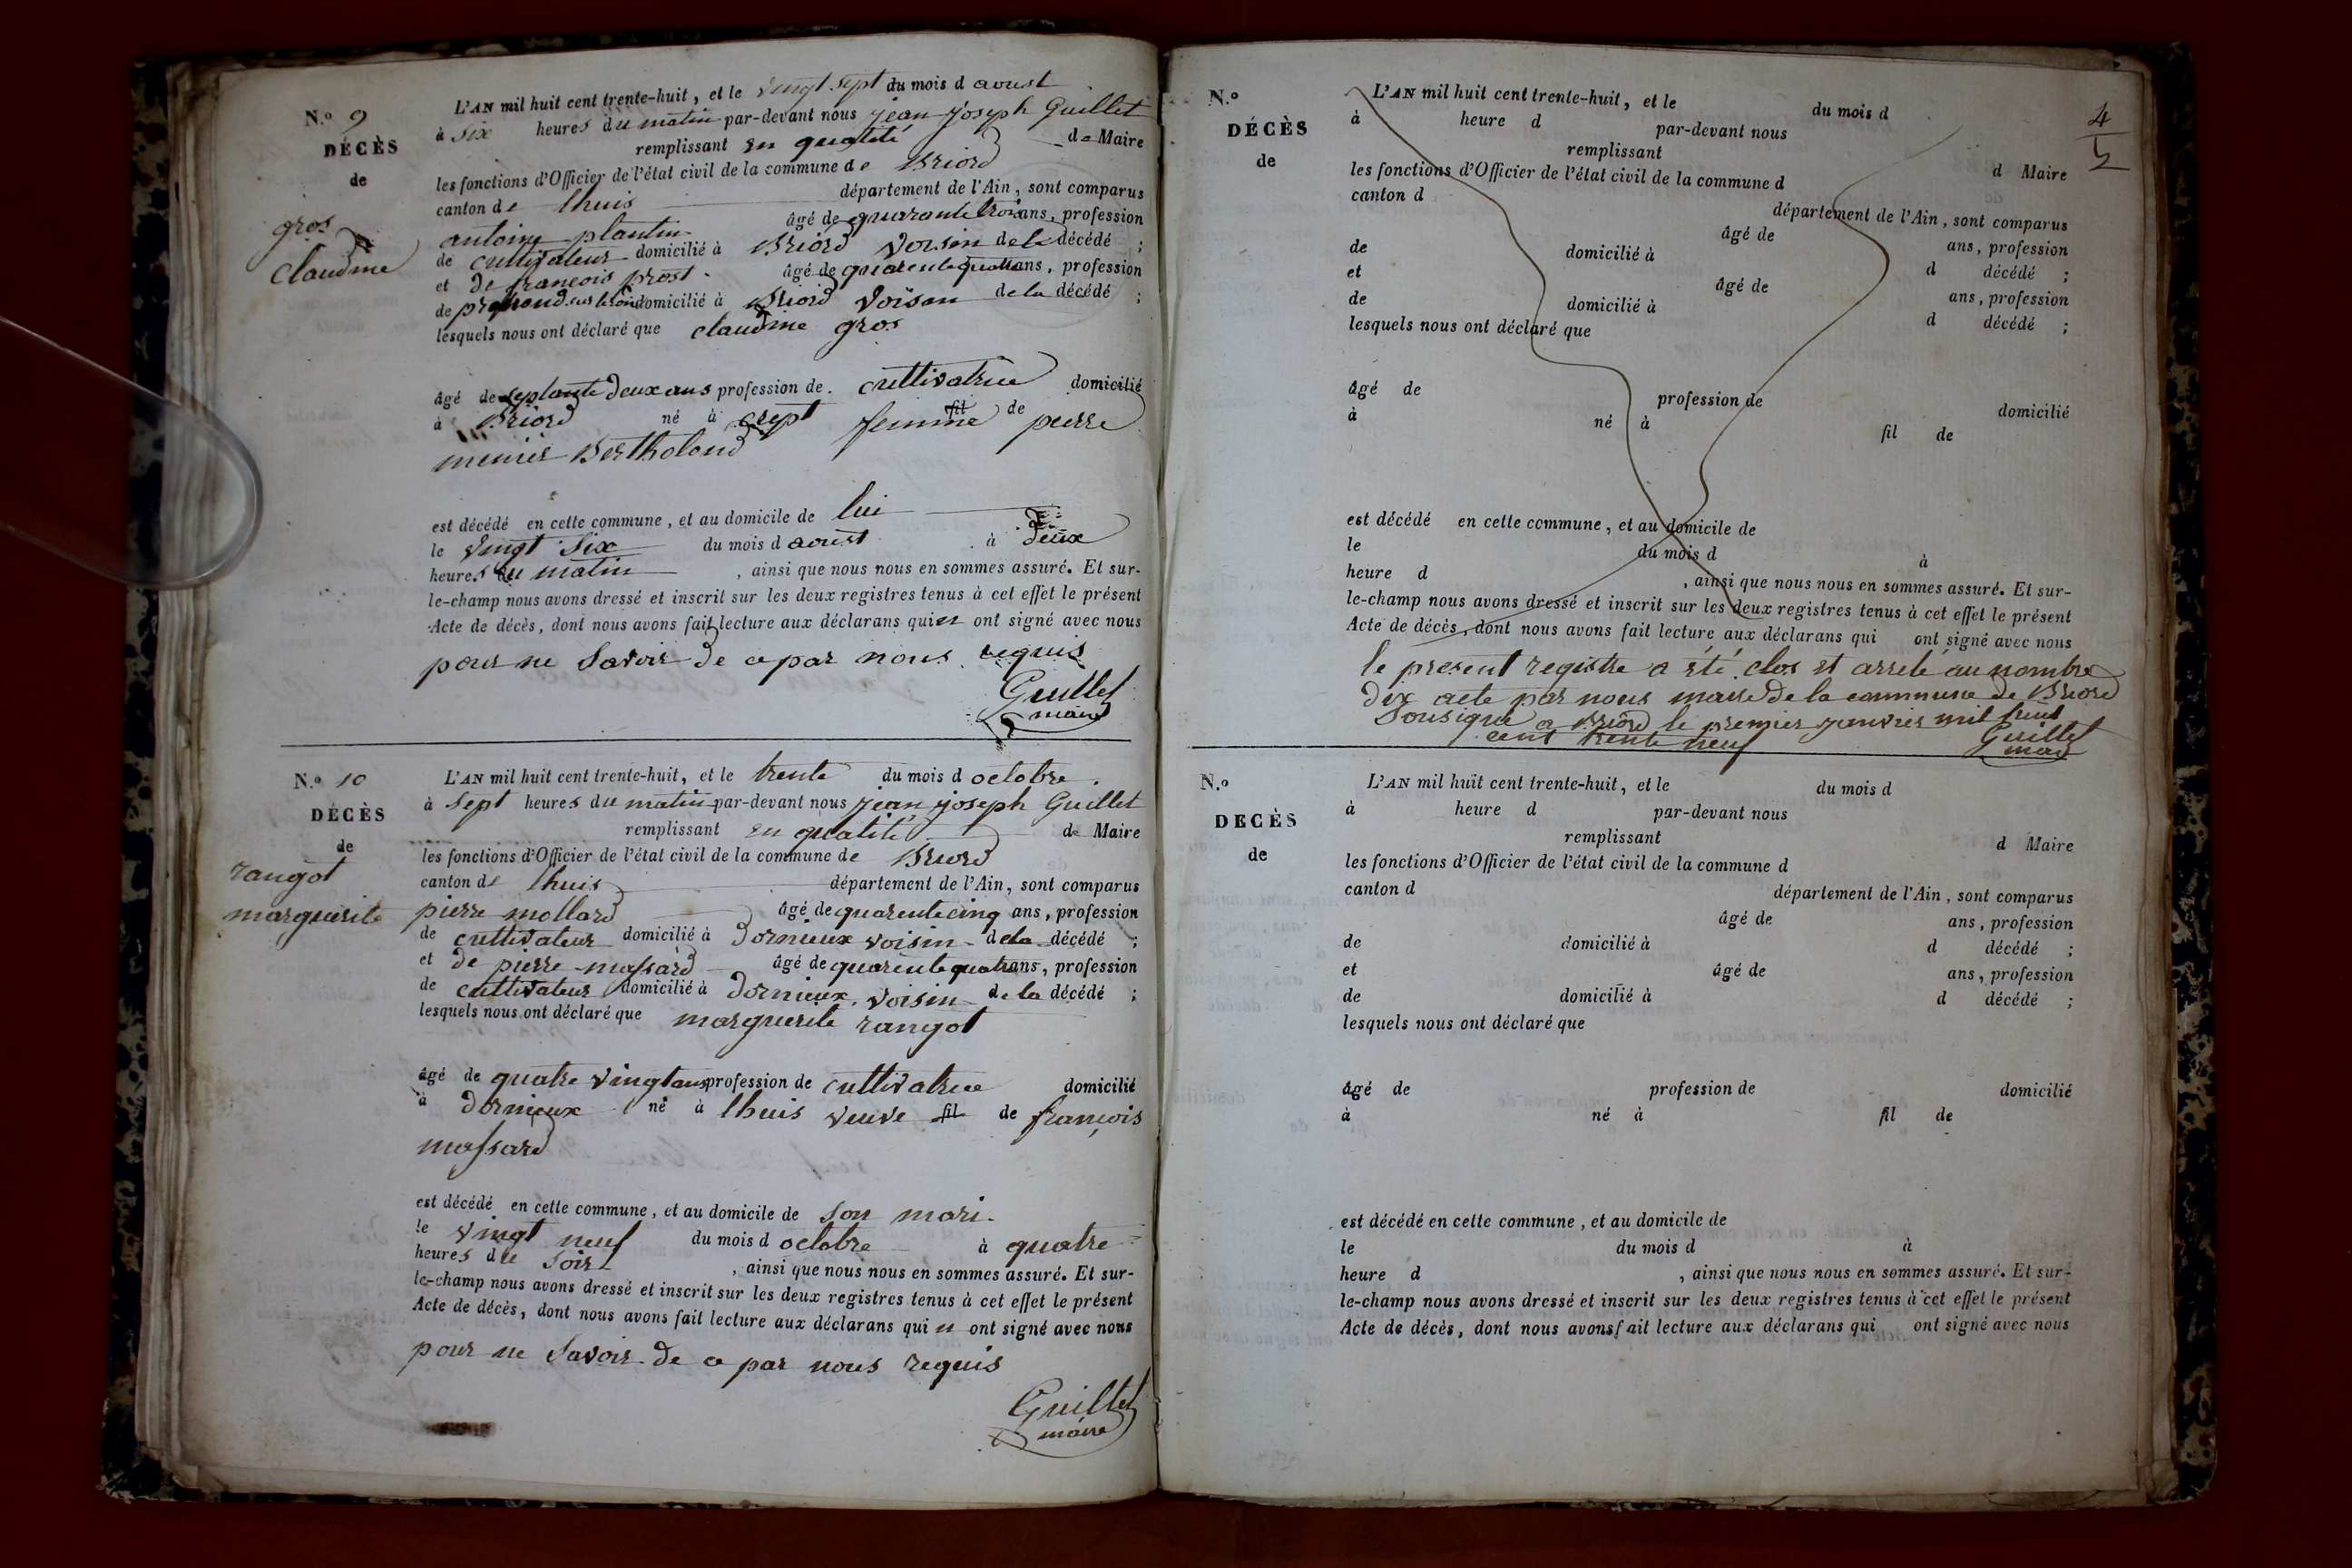 N.º 9
DÉCÈS
de
gros
claudine
L'AN mil huit cent trente-huit, et le vingt sept du mois d aoust
à six heures du matin par-devant nous jean joseph Guillet
remplissant en qualité de Maire
les fonctions d'Officier de l'état civil de la commune de Briord
canton de lhuis département de l'Ain, sont comparus
antoine plantin âgé de quarante trois ans, profession
de cultivateur domicilié à Briord voisin de la décédé ;
et de françois prost âgé de quarente quatre ans, profession
de domicilié à Briord voisin de la décédé ;
lesquels nous ont déclaré que claudine gros
âgé de septante deux ans profession de cultivatrice domicilié
à Briord né à crept femme fil de pierre
meunier Bertholond
est décédé en cette commune, et au domicile de lui
le vingt six du mois d aoust à deux
heures du matin, ainsi que nous nous en sommes assuré. Et sur-
le-champ nous avons dressé et inscrit sur les deux registres tenus à cet effet le présent
Acte de décès, dont nous avons fait lecture aux déclarans qui n ont signé avec nous
pour ne savoir de ce par nous requis
Guillet
maire
N.º 10
DÉCÈS
de
rangot
marguerite
L'AN mil huit cent trente-huit, et le trente du mois d octobre
à sept heures du matin par-devant nous jean joseph Guillet
remplissant en qualité de Maire
les fonctions d'Officier de l'état civil de la commune de Briord
canton de lhuis département de l'Ain, sont comparus
pierre mollard âgé de quarente cinq ans, profession
de cultivateur domicilié à dornieux voisin de la décédé ;
et de pierre massard âgé de quarente quatre ans, profession
de cultivateur domicilié à dornieux voisin de la décédé ;
lesquels nous ont déclaré que marguerite rangot
âgé de quatre vingt ans profession de cultivatrice domicilié
à dornieux né à lhuis veuve fil de françois
massard
est décédé en cette commune, et au domicile de son mari
le vingt neuf du mois d octobre à quatre
heures du soir, ainsi que nous nous en sommes assuré. Et sur-
le-champ nous avons dressé et inscrit sur les deux registres tenus à cet effet le présent
Acte de décès, dont nous avons fait lecture aux déclarans qui n ont signé avec nous
pour ne savoir de ce par nous requis
Guillet
maire
4
N.º
DÉCÈS
de
L'AN mil huit cent trente-huit, et le du mois d
à heure d par-devant nous
remplissant d Maire
les fonctions d'Officier de l'état civil de la commune d
canton d département de l'Ain, sont comparus
âgé de ans, profession
de domicilié à d décédé ;
et âgé de ans, profession
de domicilié à d décédé ;
lesquels nous ont déclaré que
âgé de profession de domicilié
à né à fil de
est décédé en cette commune, et au domicile de
le du mois d à
heure d , ainsi que nous nous en sommes assuré. Et sur-
le-champ nous avons dressé et inscrit sur les deux registres tenus à cet effet le présent
Acte de décès, dont nous avons fait lecture aux déclarans qui ont signé avec nous
le present registre a été clos et arreté au nombre
dix acte par nous maire de la commune de Briord
Sousigné a Briord le premier janvier mil huit
cent trente neuf
Guillet
maire
N.º
DÉCÈS
de
L'AN mil huit cent trente-huit, et le du mois d
à heure d par-devant nous
remplissant d Maire
les fonctions d'Officier de l'état civil de la commune d
canton d département de l'Ain, sont comparus
âgé de ans, profession
de domicilié à d décédé ;
et âgé de ans, profession
de domicilié à d décédé ;
lesquels nous ont déclaré que
âgé de profession de domicilié
à né à fil de
est décédé en cette commune, et au domicile de
le du mois d à
heure d , ainsi que nous nous en sommes assuré. Et sur-
le-champ nous avons dressé et inscrit sur les deux registres tenus à cet effet le présent
Acte de décès, dont nous avons fait lecture aux déclarans qui ont signé avec nous